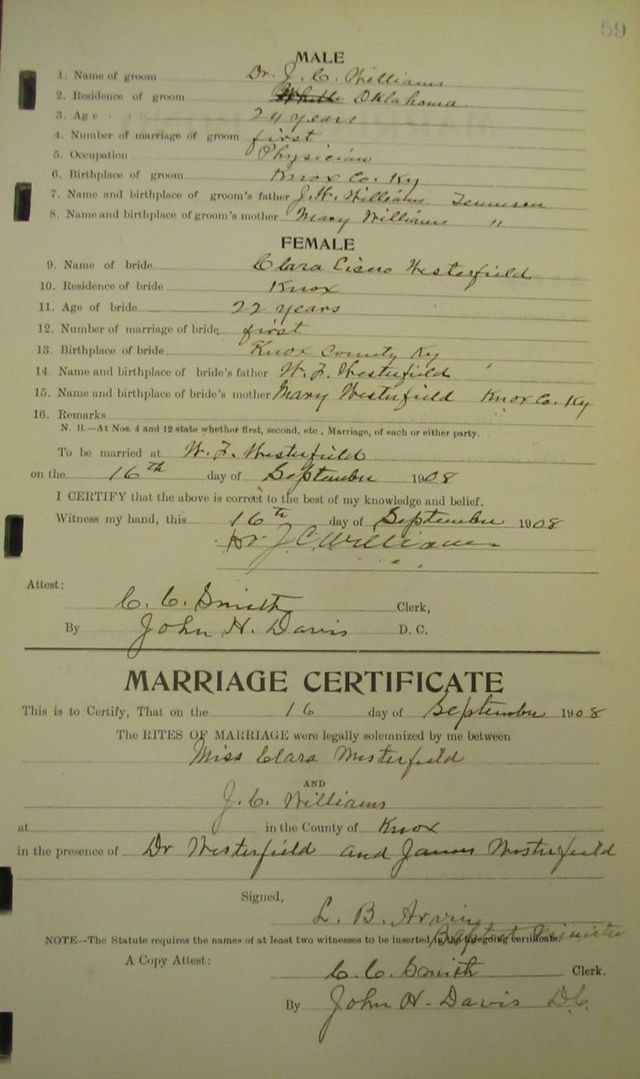 59
MALE
1. Name of groom Dr. J. C. Williams
2. Residence of groom Oklahoma
3. Age 24 years
4. Number of marriage of groom first
5. Occupation Physician
6. Birthplace of groom Knox Co. Ky
7. Name and birthplace of groom's father J. H. Williams
8. Name and birthplace of groom's mother Mary Williams "
FEMALE
9. Name of bride Clara Cisero Westerfield
10. Residence of bride Knox
11. Age of bride 22 years
12. Number of marriage of bride first
13. Birthplace of bride Knox County Ky
14. Name and birthplace of bride's father W. F. Westerfield
15. Name and birthplace of bride's mother Mary Westerfield Knox Co. Ky
16. Remarks
N. B.—At Nos. 4 and 12 state whether first, second, etc., Marriage, of each or either party.
To be married at W. F. Westerfield
on the 16th day of September 1908
I CERTIFY that the above is correct to the best of my knowledge and belief.
Witness my hand, this 16th day of September 1908
Dr. J. C. Williams
Attest:
C. C. Smith Clerk,
By John H. Davis D. C.
MARRIAGE CERTIFICATE
This is to Certify, That on the 16 day of September 1908
The RITES OF MARRIAGE were legally solemnized by me between
Miss Clara Westerfield
AND
J. C. Williams
at in the County of Knox
in the presence of Dr Westerfield and James Westerfield
Signed,
L. B. Arvin
Baptist Minister
NOTE--The Statute requires the names of at least two witnesses to be inserted in the foregoing certificate.
A Copy Attest: C. C. Smith Clerk.
By John H. Davis D.C.